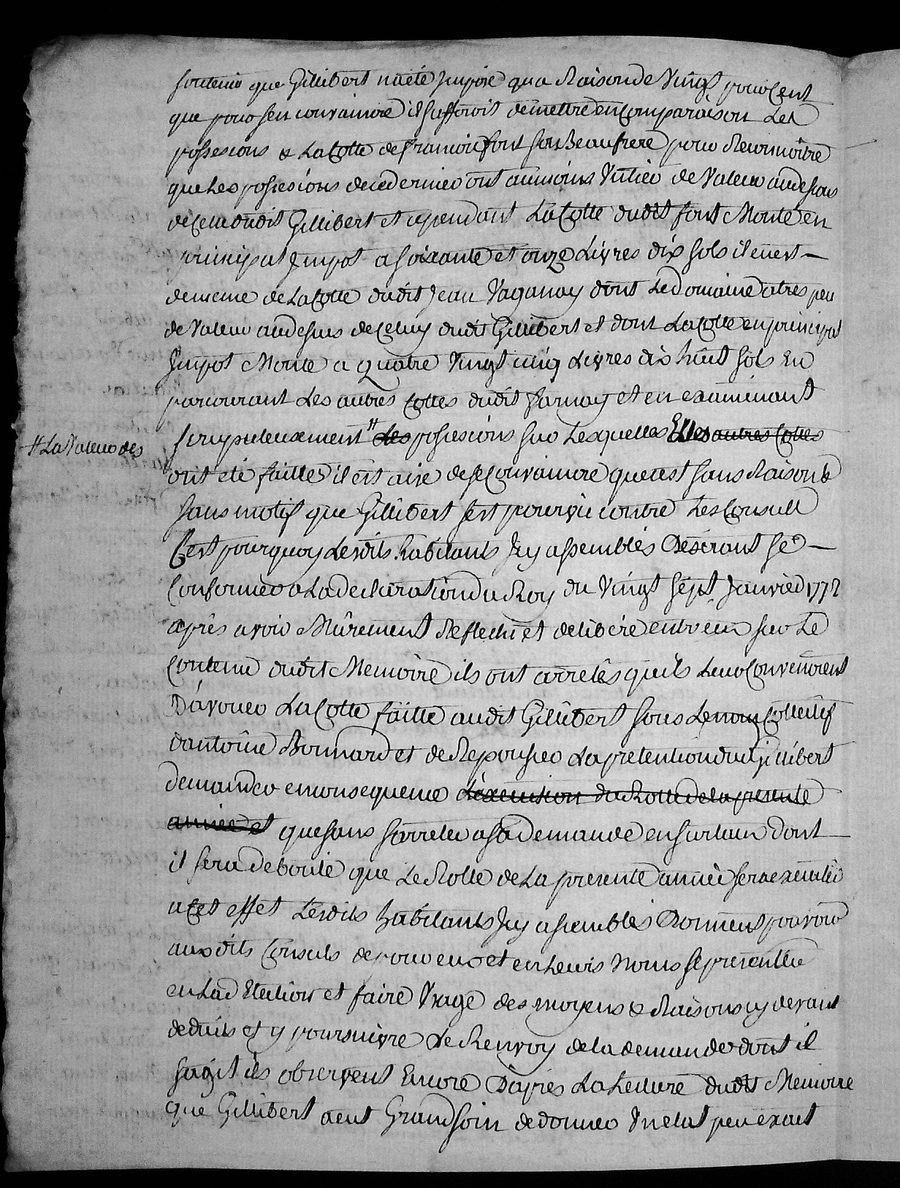 soutenir que Gillibert n'aété Imposé qu'a Raison de Vingt pour Cent
que pour s'en convaincre il suffiroit de mettre en Comparaison Les
possesions & La Cotte de francoi font son Beaufrere pour Reconnoitre
que Les possesions de ce dernier ont aumoins Un tier de Valeur au desous
de Celle dudit Gillibert et cependant La Cotte dudit font Monte en
principal Impot a soixante et onze Livres dix sols il en est
de meme de La Cotte dudit Jean Vaganay dont Le Domaine a tres peu
de Valeur audesus de Celuy dudit Gillibert et dont La Cotte en principal
Impot Monte a quatre Vingt cinq Livres dix huit sols En
parcourant Les autres Cottes dudit Farnay et en examinant
#La Valeur des
scrupuleusement # des possesions sur Lesquelles Elles autres Cottes
ont été faitte il est aisé de se Convaincre que c'est sans Raison &
sans motif que Gillibert s'est pourvu contre Les Consuls
C'est pourquoy Lesdits habitants Icy assemblés Désirant se
Conformer a La declaration du Roy du Vingt Sept Janvier 1772
après avoir Mûrement Réfléchi et déliberé entr'eux sur Le
Contenu dudit Memoire ils ont arretés quils Leur Conviennent
D'avouer La Cotte faitte audit Gillibert sous Le nom Collectif
d'antoine Bonnard et de Repousser La pretention dudit Gillibert
demander en consequence L'éxécution du Rolle de la presente
année et que sans s'arreter a sa demande en surtaux dont
il sera debouté que Le Rolle de La presente année sera exécuté
a cet effet Lesdits habitants Icy assemblés Donnent pouvoir
auxdits Consuls de pour eux et en Leurs Noms se presenter
en Lad Election et faire Usage des moyens & Raisons cy devant
deduits et y poursuivre Le Renvoy de la demande dont il
s'agit ils observent Encore D'après La Lecture dudit Memoire
que Gillibert a eut Grand soin de donner Un etat peu exact